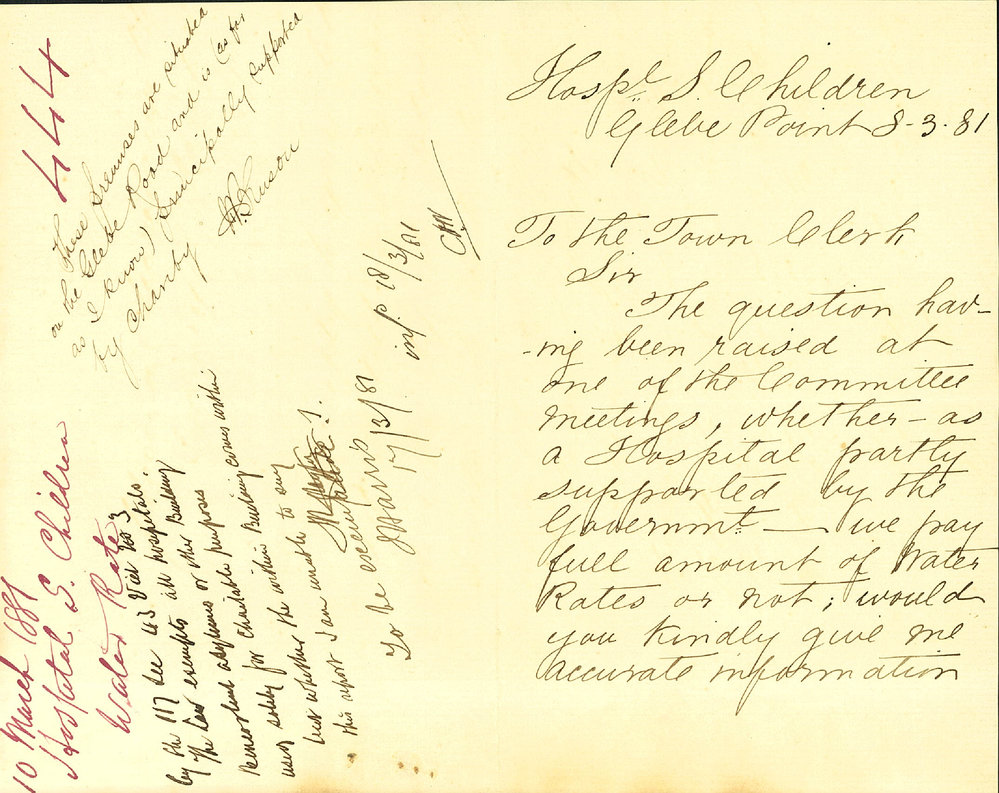 Hospl. S. Children
Glebe Point 8-3.81
To the Town Clerk
Sir
The question hav-
-ing been raised at
one of the Committee
meetings, whether - as
a Hospital partly
supported by the
Governmt. — we pay
full amount of Water
Rates or not; would
you kindly give me
accurate information
444
These premises are situated
on the Glebe Road and is (as far
as I know) principally supported
by Charity
10 March 1881
Hospital S. Children
Water Rate
by the 117 Sec 43 Vict No 3
The law exempts all hospitals
Benevolent asylums or other Building
used solely for charitable purposes
but whether the within Building comes within
this report I am unable to say
To be exempt
J Harris
17/3/81
inf. 18/3/81